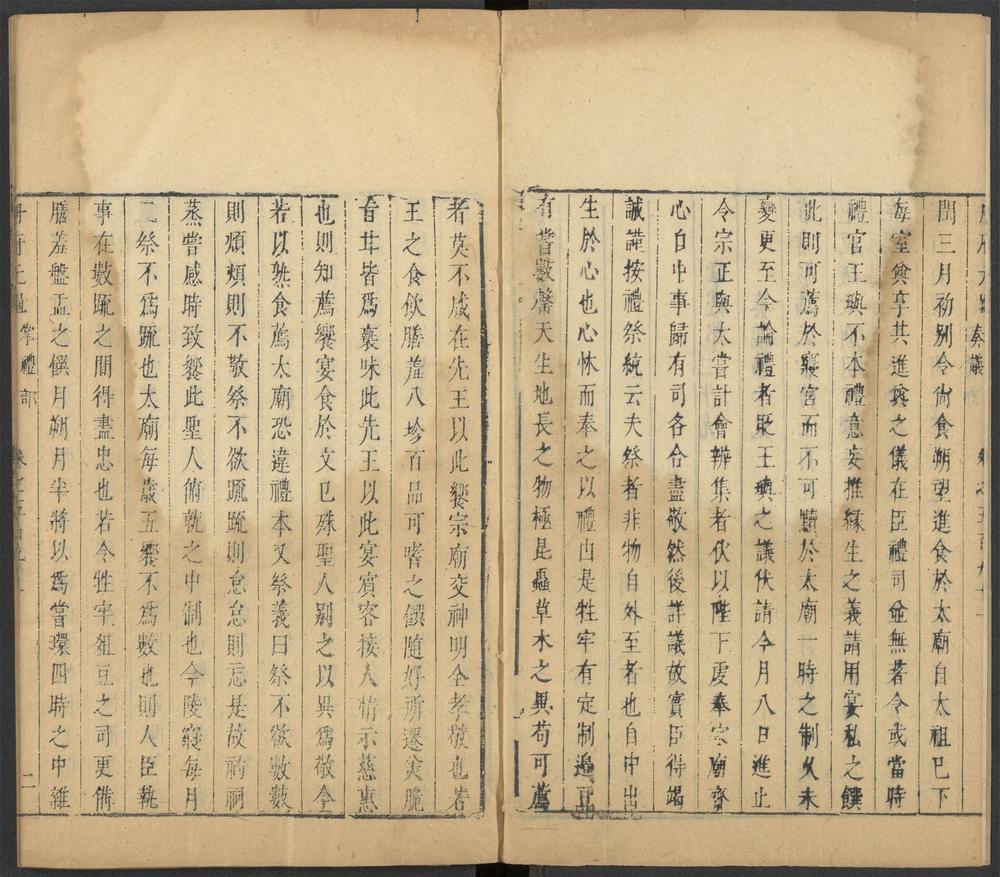 奏議
閏三月初别令尙食朔望進食於太廟自太祖已下
每室奠享其進奠之儀在臣禮司並無著令或當時
禮官王璵不本禮意妄推緣生之義請用宴私之饌
此則可薦於寢宮而不可瀆於太廟一時之制久未
變更至今論禮者貶王璵之議伏請今月八日進止
令宗正與太嘗計會辦集者伏以陛下虔奉宗廟齋
心自中事歸有司各合盡敬然後詳議故實臣得竭
誠謹按禮祭統云夫祭者非物自外至者也自中出
生於心也心怵而奉之以禮由是牲牢有定制籩豆
有嘗數馨天生地長之物極昆蟲草木之異苟可薦
者莫不咸在先王以此饗宗廟交神明全孝敬也若
王之食飲膳羞八珍百品可嗜之饌隨好所遷美脆
旨甘皆爲褻味此先王以此宴賓客接人情示慈惠
也則知薦饗宴食於文已殊聖人别之以異爲敬今
若以熟食薦太廟恐違禮本又祭義曰祭不欲數數
則煩煩則不敬祭不欲疏疏則怠怠則忘是故禴祠
蒸嘗感時致饗此聖人俯就之中制也今陵寢每月
二祭不爲疏也太廟每歲五饗不爲數也則人臣執
事在數疏之間得盡忠也若令牲牢俎豆之司更備
膳羞盤盂之饌月朔月半將以爲嘗環四時之中雜
掌禮部 二